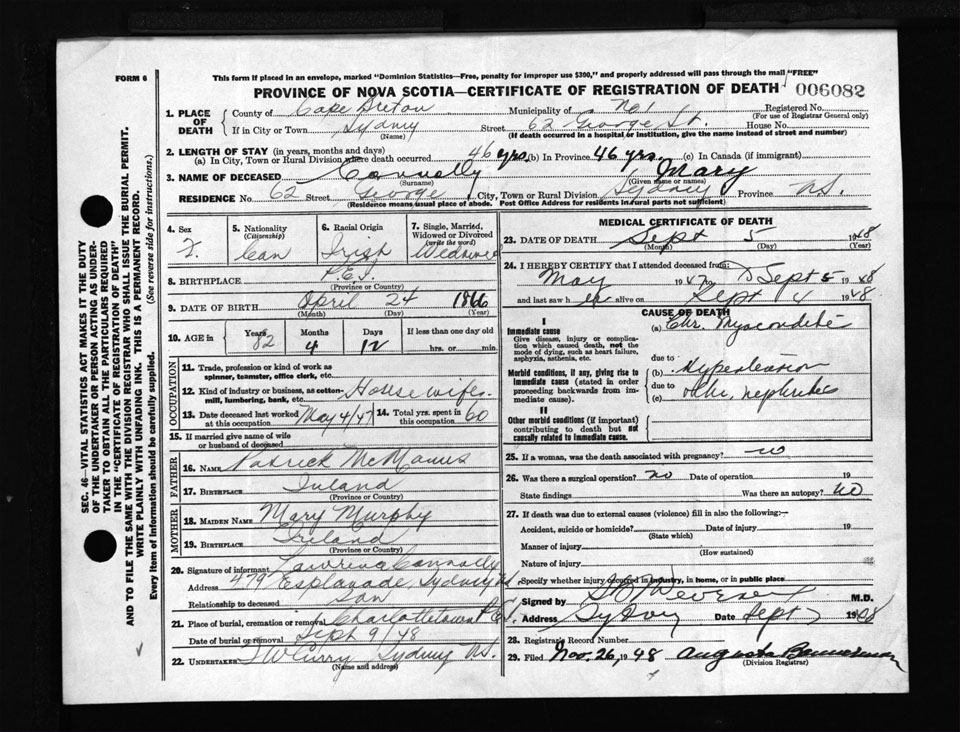 FORM 6
This form if placed in an envelope, marked "Dominion Statistics—Free, penalty for improper use $300," and properly addressed will pass through the mail "FREE"
PROVINCE OF NOVA SCOTIA—CERTIFICATE OF REGISTRATION OF DEATH 006082
1. PLACE OF DEATH
County of Cape Breton Municipality of No 1 Registered No.
(For use of Registrar General only)
If in City or Town Sydney Street 62 George St. House No.
(Name) (If death occurred in a hospital or institution, give the name instead of street and number)
2. LENGTH OF STAY (in years, months and days)
(a) In City, Town or Rural Division where death occurred 46 yrs (b) In Province 46 yrs. (c) In Canada (if immigrant)
3. NAME OF DECEASED Connolly Mary
(Surname) (Given name or names)
RESIDENCE No. 62 Street George City, Town or Rural Division Sydney Province N.S.
(Residence means usual place of abode. Post Office Address for residents in rural parts not sufficient)
4. Sex F.
5. Nationality (Citizenship) Can
6. Racial Origin Irish
7. Single, Married, Widowed or Divorced (write the word) Widowed
8. BIRTHPLACE P.E.I.
(Province or Country)
9. DATE OF BIRTH April 24 1866
(Month) (Day) (Year)
10. AGE in Years 82 Months 4 Days 12 If less than one day old hrs. or min.
OCCUPATION
11. Trade, profession or kind of work as spinner, teamster, office clerk, etc.
12. Kind of industry or business, as cotton-mill, lumbering, bank, etc. Housewife
13. Date deceased last worked at this occupation May 4/47 14. Total yrs. spent in this occupation 60
15. If married give name of wife or husband of deceased
FATHER
16. NAME Patrick McManus
17. BIRTHPLACE Ireland
(Province or Country)
MOTHER
18. MAIDEN NAME Mary Murphy
19. BIRTHPLACE Ireland
(Province or Country)
20. Signature of informant Lawrence Connolly
Address 479 Esplanade, Sydney N.S.
Relationship to deceased Son
21. Place of burial, cremation or removal Charlottetown P.E.I.
Date of burial or removal Sept 9/48
22. UNDERTAKER T W Curry Sydney N.S.
(Name and address)
MEDICAL CERTIFICATE OF DEATH
23. DATE OF DEATH Sept 5 1948
(Month) (Day) (Year)
24. I HEREBY CERTIFY that I attended deceased from:
May 1947 to Sept 5 1948
and last saw her alive on Sept 4 1948
CAUSE OF DEATH
I
Immediate cause
Give disease, injury or complication which caused death, not the mode of dying, such as heart failure, asphyxia, asthenia, etc.
(a) Chr. Myocarditis
due to
Morbid conditions, if any, giving rise to immediate cause (stated in order proceeding backwards from immediate cause).
(b) Hypertension
due to
(c) nephritis
II
Other morbid conditions (if important) contributing to death but not causally related to immediate cause.
25. If a woman, was the death associated with pregnancy? no
26. Was there a surgical operation? no Date of operation 19
State findings Was there an autopsy? no
27. If death was due to external causes (violence) fill in also the following:—
Accident, suicide or homicide? Date of injury 19
(State which)
Manner of injury
(How sustained)
Nature of injury
Specify whether injury occurred in industry, in home, or in public place
Signed by M.D.
Address Sydney Date Sept 7 1948
28. Registrar's Record Number
29. Filed Nov. 26, 1948 Augusta Bannerman
(Division Registrar)
SEC. 46—VITAL STATISTICS ACT MAKES IT THE DUTY
OF THE UNDERTAKER OR PERSON ACTING AS UNDER-
TAKER TO OBTAIN ALL THE PARTICULARS REQUIRED
IN THE "CERTIFICATE OF REGISTRATION OF DEATH"
AND TO FILE THE SAME WITH THE DIVISION REGISTRAR WHO SHALL ISSUE THE BURIAL PERMIT.
WRITE PLAINLY WITH UNFADING INK. THIS IS A PERMANENT RECORD.
Every item of information should be carefully supplied. (See reverse side for instructions.)